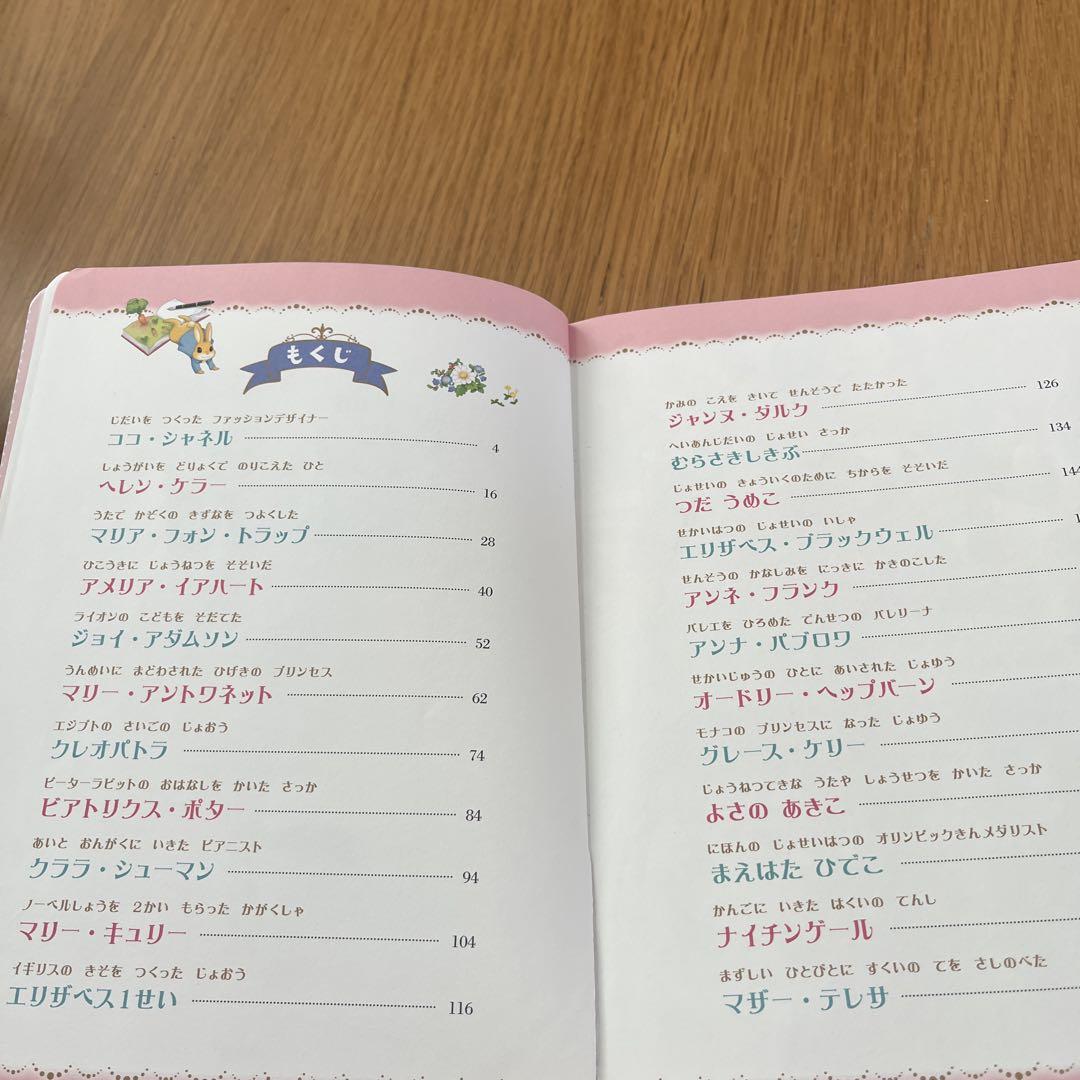 もくじ
じだいを つくった ファッションデザイナー
ココ・シャネル 4
しょうがいを どりょくで のりこえた ひと
ヘレン・ケラー 16
うたで かぞくの きずなを つよくした
マリア・フォン・トラップ 28
ひこうきに じょうねつを そそいだ
アメリア・イアハート 40
ライオンの こどもを そだてた
ジョイ・アダムソン 52
うんめいに まどわされた ひげきの プリンセス
マリー・アントワネット 62
エジプトの さいごの じょおう
クレオパトラ 74
ピーターラビットの おはなしを かいた さっか
ビアトリクス・ポター 84
あいと おんがくに いきた ピアニスト
クララ・シューマン 94
ノーベルしょうを 2かい もらった かがくしゃ
マリー・キュリー 104
イギリスの きそを つくった じょおう
エリザベス1せい 116
かみの こえを きいて せんそうで たたかった
ジャンヌ・ダルク 126
へいあんじだいの じょせい さっか
むらさきしきぶ 134
じょせいの きょういくのために ちからを そそいだ
つだ うめこ 144
せかいはつの じょせいの いしゃ
エリザベス・ブラックウェル
せんそうの かなしみを にっきに かきのこした
アンネ・フランク
バレエを ひろめた でんせつの バレリーナ
アンナ・パブロワ
せかいじゅうの ひとに あいされた じょゆう
オードリー・ヘップバーン
モナコの プリンセスに なった じょゆう
グレース・ケリー
じょうねつてきな うたや しょうせつを かいた さっか
よさの あきこ
にほんの じょせいはつの オリンピックきんメダリスト
まえはた ひでこ
かんごに いきた はくいの てんし
ナイチンゲール
まずしい ひとびとに すくいの てを さしのべた
マザー・テレサ